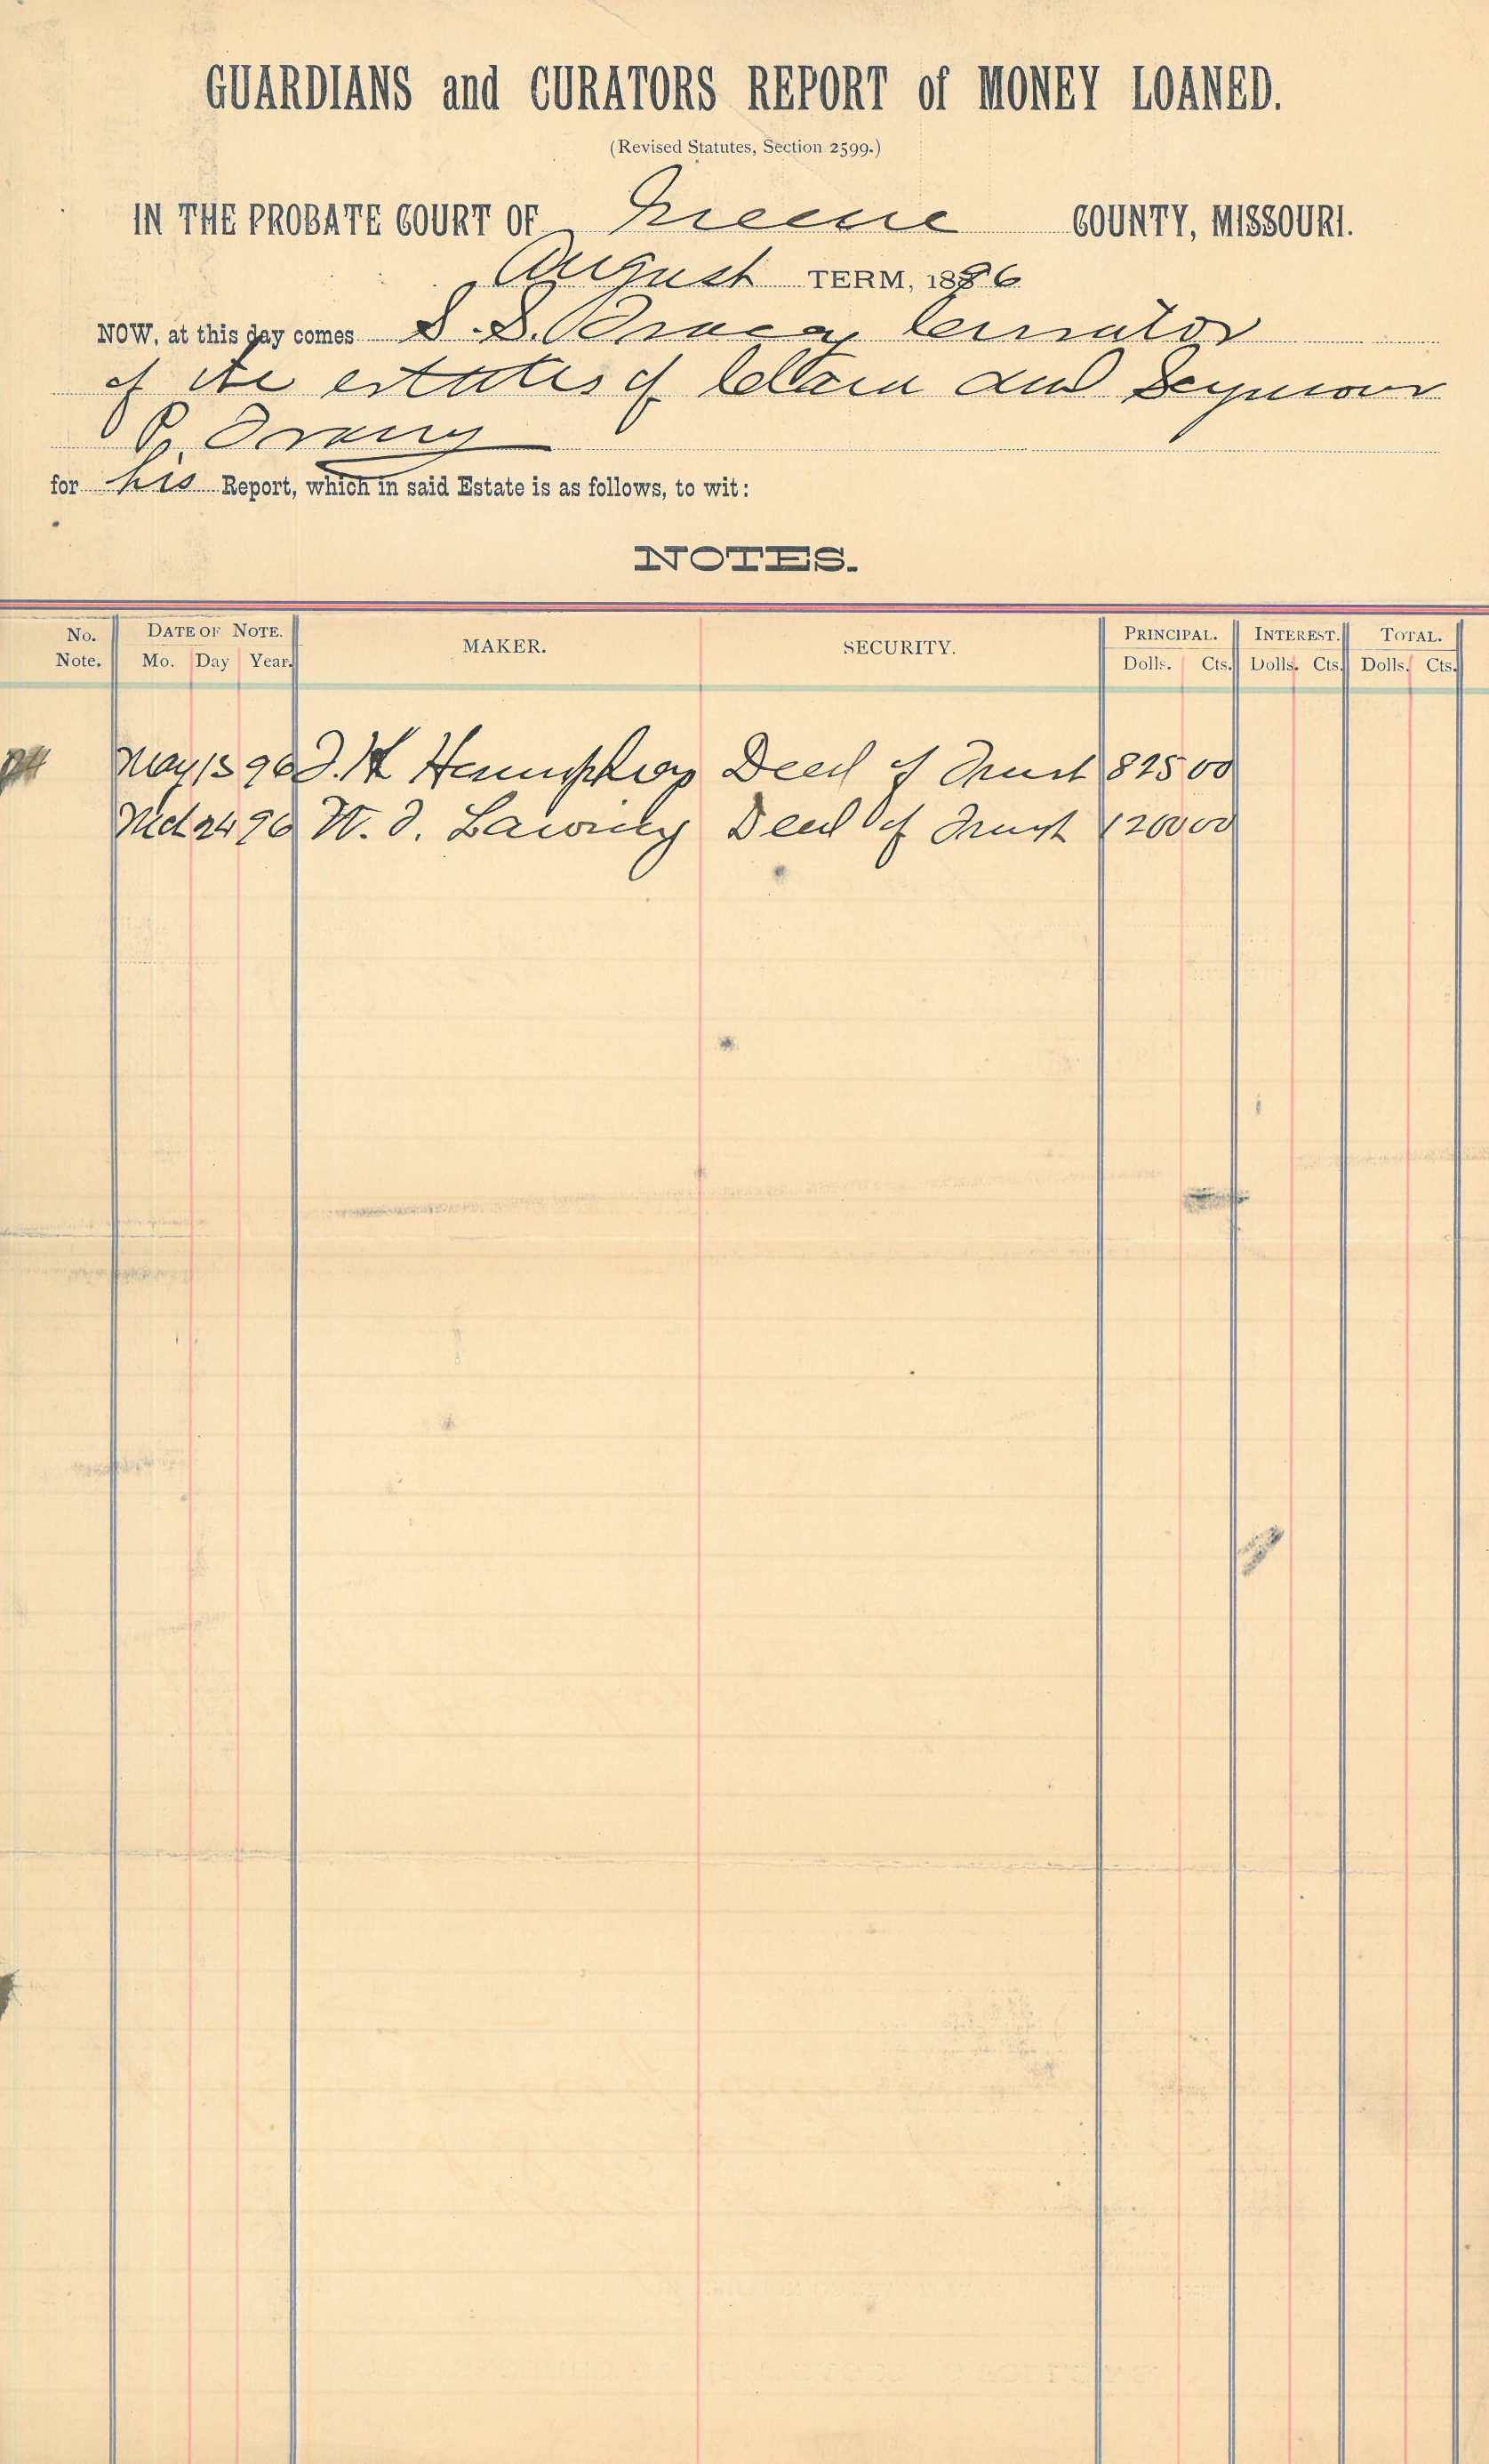 GUARDIANS and CURATORS REPORT of MONEY LOANED.
(Revised Statutes, Section 2599.)
IN THE PROBATE COURT OF Greene COUNTY, MISSOURI.
August TERM, 1896
NOW, at this day comes S. S. Tracy Currator
of the estates of Clara and Seymour
P. Tracy
for his Report, which in said Estate is as follows, to wit:
NOTES.
No. Note. DATE OF NOTE. Mo. Day Year. MAKER. SECURITY. PRINCIPAL. Dolls. Cts. INTEREST. Dolls. Cts. TOTAL. Dolls. Cts.
May 13 96 Humphreys Deed of Trust 825 00
Mch 24 96 W. T. Lawing Deed of Trust 1200 00